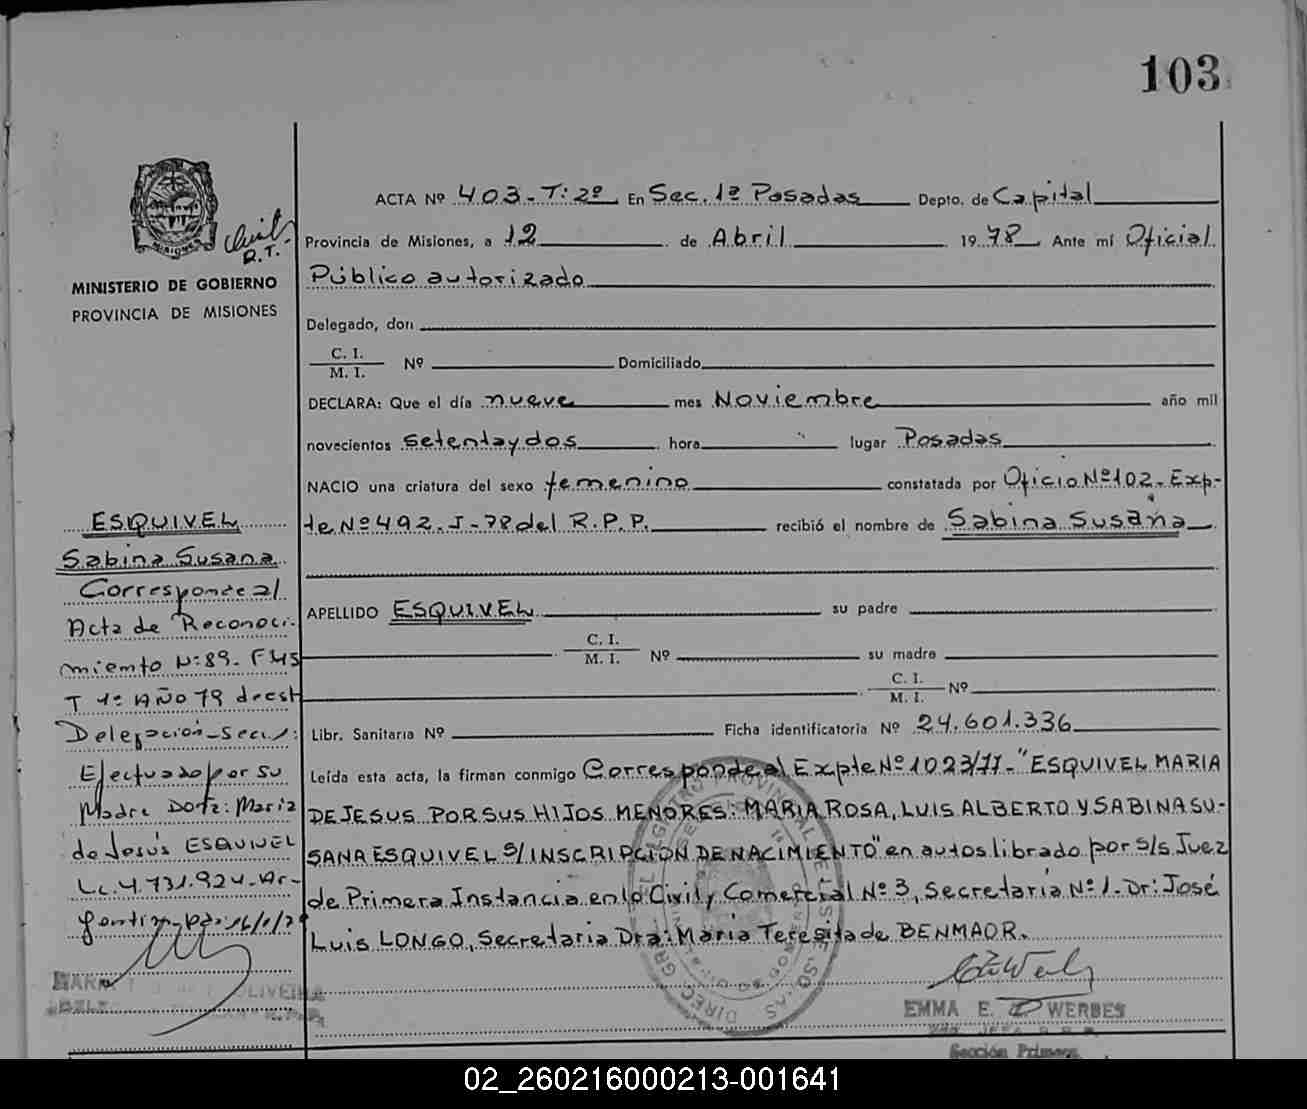 103
ACTA Nº 403-T:2º En Sec. 1ª Posadas Depto. de Capital
Provincia de Misiones, a 12 de Abril 1978 Ante mí Oficial
R.T.
Público autorizado
MINISTERIO DE GOBIERNO
PROVINCIA DE MISIONES
Delegado, don
C. I.
M. I. Nº Domiciliado
DECLARA: Que el día nueve mes Noviembre año mil
novecientos setentaydos hora lugar Posadas
NACIO una criatura del sexo femenino constatada por Oficio Nº102-Exp-
te Nº492-J-78 del R.P.P. recibió el nombre de Sabina Susana
APELLIDO ESQUIVEL su padre
C. I.
M. I. Nº su madre
C. I.
M. I. Nº
Libr. Sanitaria Nº Ficha identificatoria Nº 24.601.336
Leída esta acta, la firman conmigo Corresponde al Expte Nº1023/77-"ESQUIVEL MARIA
DE JESUS POR SUS HIJOS MENORES: MARIA ROSA, LUIS ALBERTO Y SABINA SU-
SANA ESQUIVEL S/INSCRIPCION DE NACIMIENTO" en autos librado por S/S Juez
de Primera Instancia en lo Civil y Comercial Nº3, Secretaría Nº1-Dr: José
Luis LONGO, Secretaria Dra: María Teresita de BENMAOR.
ESQUIVEL
Sabina Susana
Corresponde al
Acta de Reconoci-
miento Nº:89- Fº45
T 1º AÑO 79 de est
Delegación-Secc 1:
Efectuado por su
Madre Doña: María
de Jesús ESQUIVEL
Lc. 4.731.924-Ar-
gentina-
EMMA E. D WERBES
Sección Primera
02_260216000213-001641